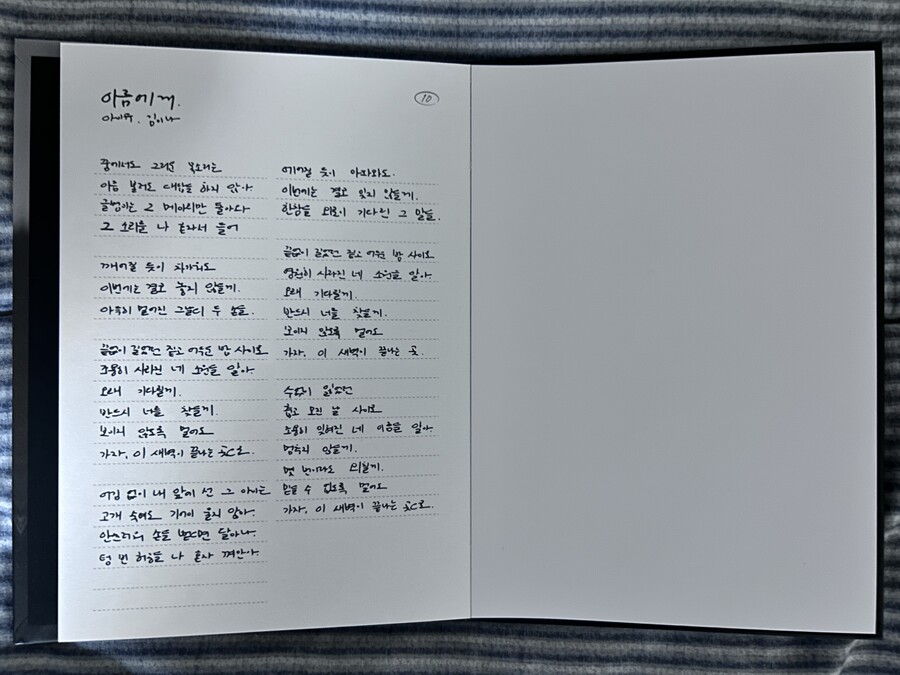 이름에게.
아이유. 김이나
10
꿈에서도 그리운 목소리는
이름 불러도 대답을 하지 않아
글썽이는 그 메아리만 돌아와
그 소리를 나 혼자서 들어
깨어질 듯이 차가워도
이번에는 결코 놓지 않을게.
아득히 멀어진 그날의 두 손을.
끝없이 길었던 짙고 어두운 밤 사이로
조용히 사라진 네 소원을 알아.
오래 기다릴게.
반드시 너를 찾을게.
보이지 않도록 멀어도
가자. 이 새벽이 끝나는 곳으로.
어김 없이 내 앞에 선 그 아이는
고개 숙여도 기어이 울지 않아.
안쓰러워 손을 뻗으면 달아나.
텅 빈 허공을 나 혼자 껴안아.
에어질 듯이 아파와도.
이번에는 결코 잊지 않을게.
한참을 외로이 기다린 그 말을.
끝없이 길었던 짙고 어두운 밤 사이로
영원히 사라진 네 소원을 알아.
오래 기다릴게.
반드시 너를 찾을게.
보이지 않도록 멀어도
가자. 이 새벽이 끝나는 곳.
수없이 잃었던
춥고 모진 날 사이로
조용히 잊혀진 네 이름을 알아.
멈추지 않을게.
몇 번이라도 외칠게.
믿을 수 없도록 멀어도
가자. 이 새벽이 끝나는 곳으로.